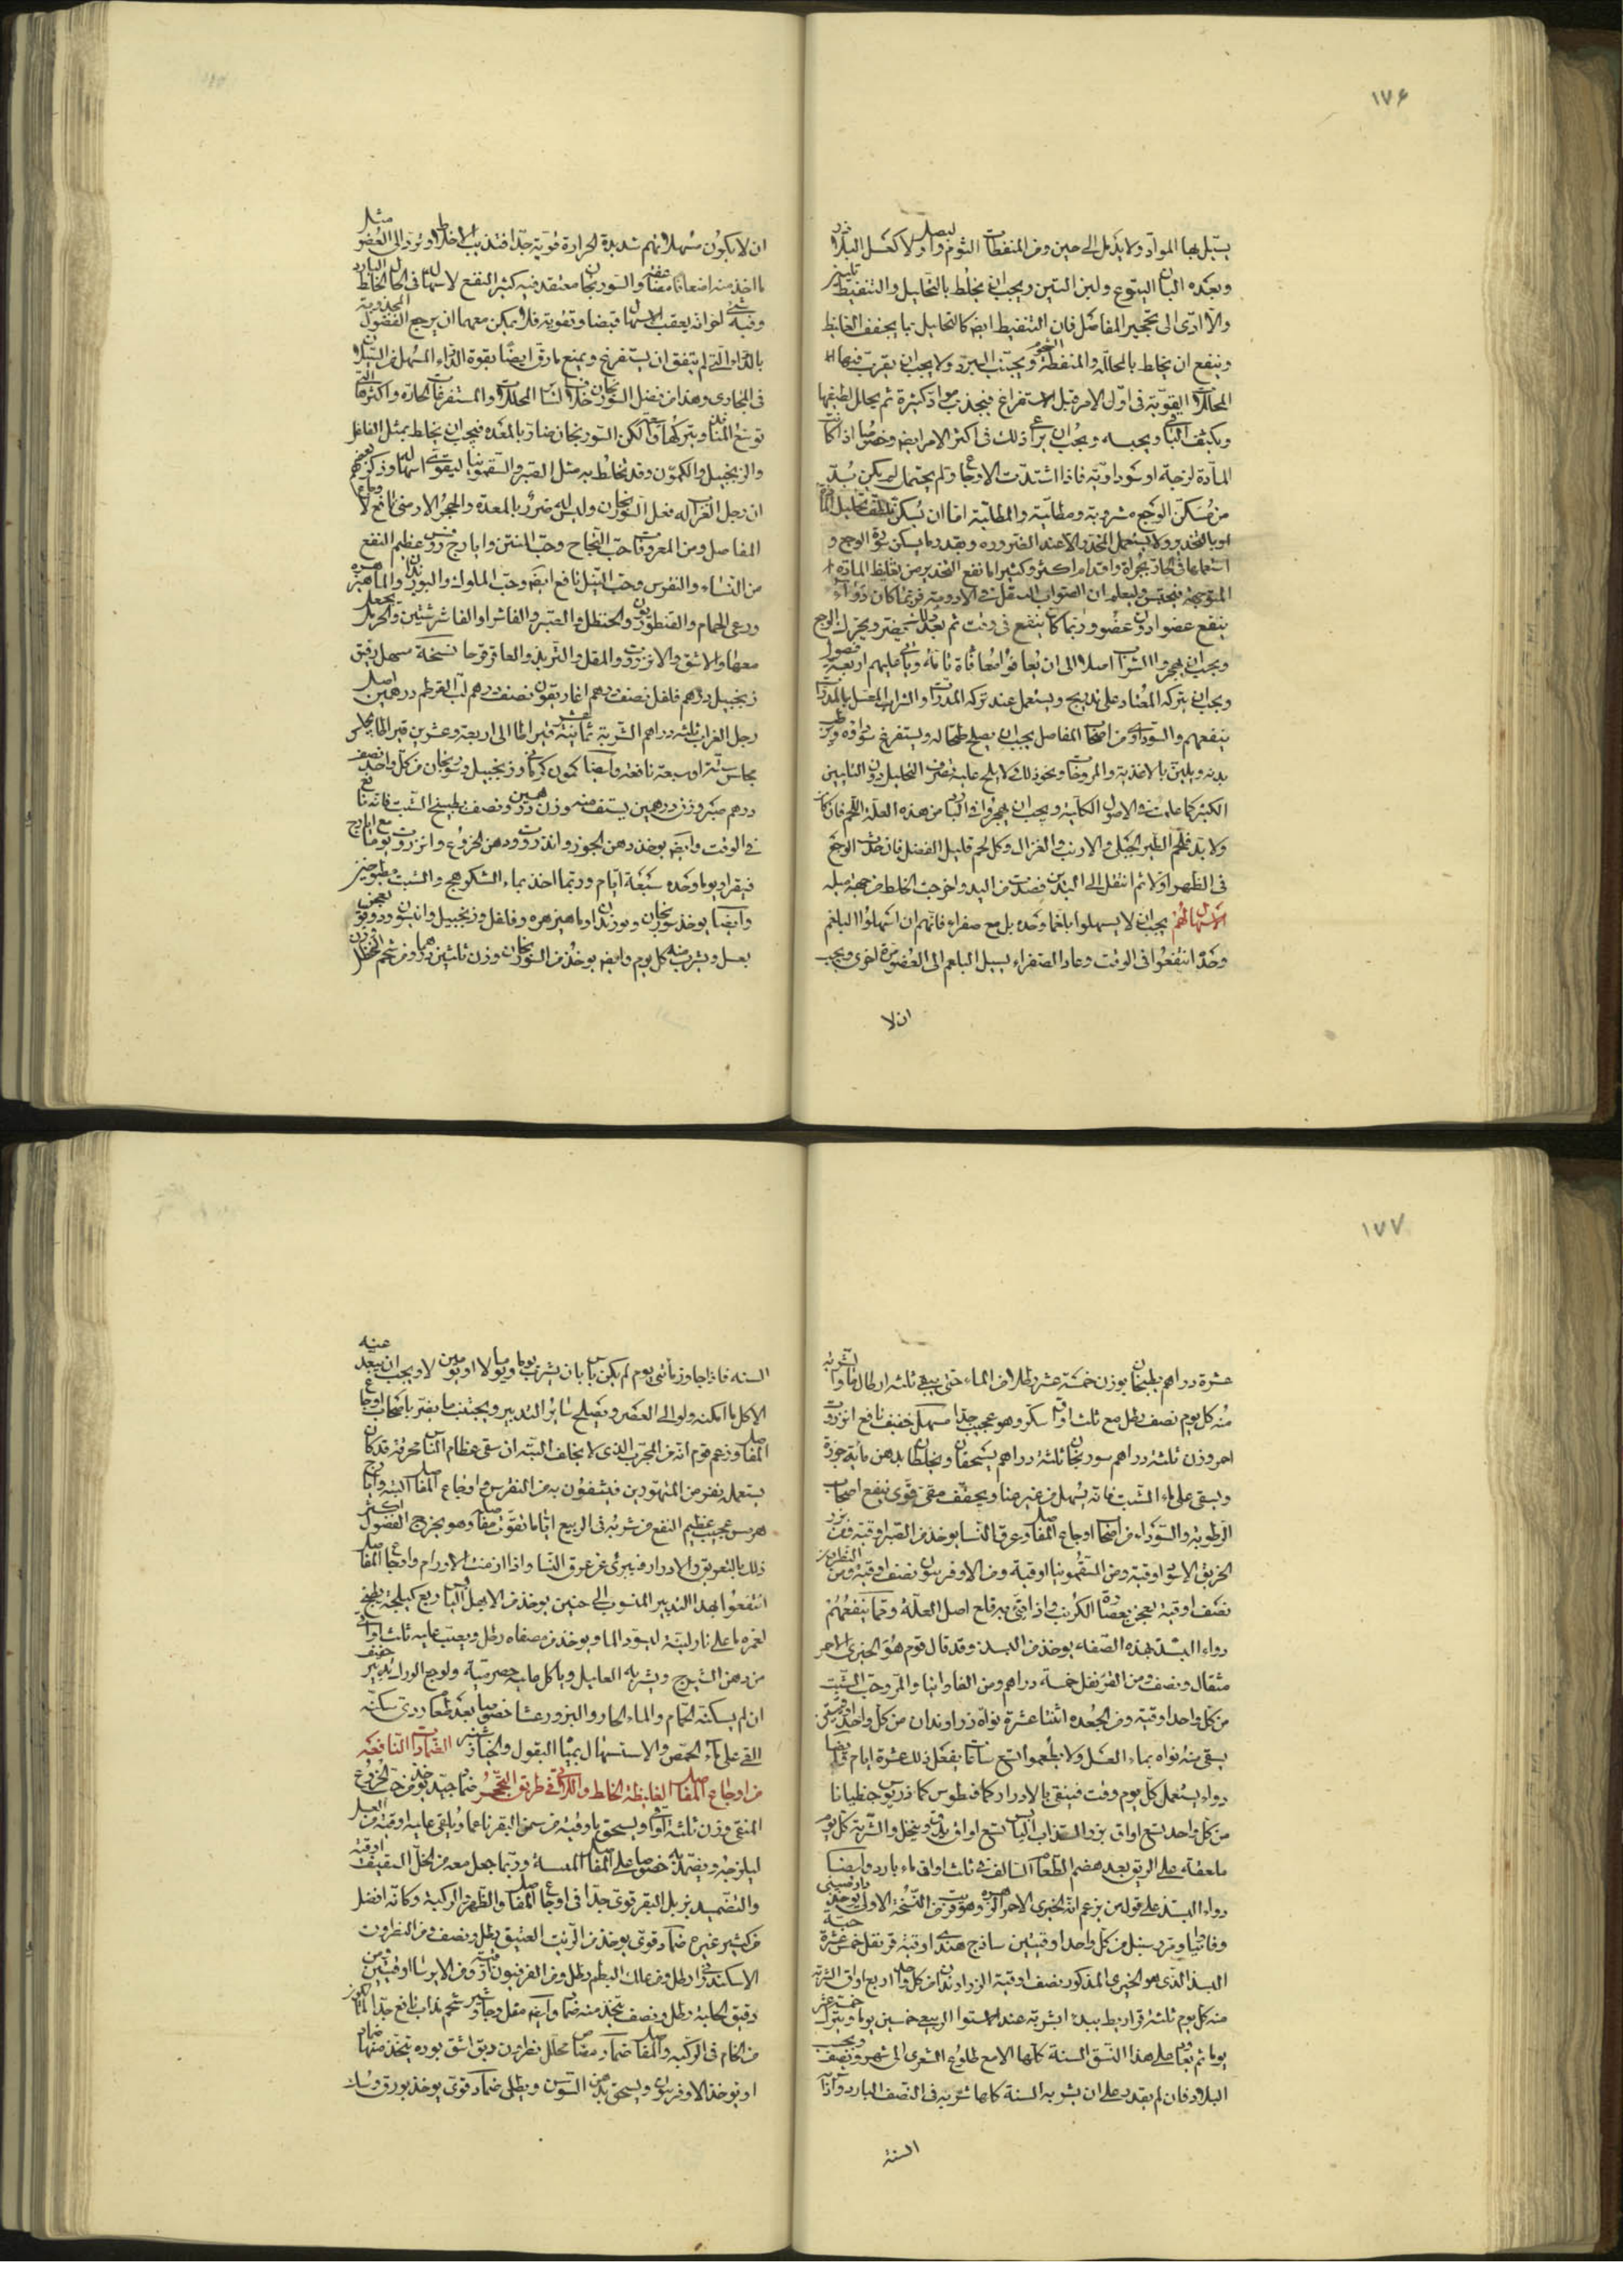 ١٧۶
يسيل بها المواد ولا يدمل الى حين ومن المنفطات الثوم والبصل ولا كعسل البلادر
وبعده البان اليتوع ولبن التين ويجب ان يخلط بالتحليل والتنفيط تليين
والا ادى الى تحجير المفاصل فان التنفيط ايضا كالتحليل مما يجفف الغليظ
وينفع ان يخلط بالمحللة والمنفطة الشحوم ويجتنب المبرد ولا يجب ان يقرب فيها
المحللات القوية فى اول الامر قبل الاستفراغ فيجذب مواد كثيرة ثم يحلل لطيفها
ويكثف الباقى ويحبسه ويجب ان يراعى ذلك فى اكثر الامر ايضا وخصوصا اذا كانت
المادة لزجة او سوداوية فاذا اشتدت الاوجاع ولم يحتمل لم يكن بد
من مسكن الوجع مشروبة ومطلية والمطلية اما ان يسكن بتلطيف تحليل
او بالتخدير ولا يستعمل المخدر الا عند الضرورة وبقدر ما يسكن سورة الوجع و
استعمالها فى الحار بجرأة واقدام اكثر وكثيرا ما نفع التخدير من تغليظ المادة
المتوجهة فيحتبس وليعلم ان الصواب التنقل فى الادوية فربما كان دواء
ينفع عضوا دون عضو وربما كان ينفع فى وقت ثم بعد ذلك يضر ويحرك الوجع
ويجب ان يهجروا الشراب اصلا الى ان يعافوا معافاة تامة ويأتى عليهم اربعة فصول
ويجب ان يترك المعتاد على تدريج ويستعمل عند تركه المدرات والشراب المعسل بالمدرات
ينفعهم والسوداوى من اصحاب المفاصل يجب ان يصلح طحاله ويستفرغ سوداؤه ويرطب
بدنه ويلين بالاغذية والمروخات ونحو ذلك لا يلح عليه بصرف التحليل دون التليين
الكثير كما علمت فى الاصول الكلية ويجب ان يهجروا فى البدء من هذه العلة اللحم فان كان
ولا بد فلحم الطير الجبلى والارنب والغزال وكل لحم قليل الفضل فان حدث الوجع
فى الظهر اولا ثم انتقل الى اليدين فصدت من اليد واخرجت الخلط من جهة ميله
الاسهال لهم يجب ان لا يسهلوا بلغما وحده بل مع صفراء فانهم ان اسهلوا البلغم
وحده انتفعوا فى الوقت وعاد الصفراء يسيل البلغم الى العضو مرة اخرى ويجب
ان لا
ان لا يكون مسهلاتهم شديدة الحرارة قوية جدا فتذيب الاخلاط وترد الى العضو مثل
ما اخذ منه اضعافا مضاعفة والسورنجان معتقد فيه كثير النفع لاسهاله فى الحال الخلط البارد
وفيه شئ اخر انه يعقب الاسهال قبضا وتقوية فلا يمكن معهما ان يرجع الفضول المجذوبة
بالدواء التى لم يتفق ان يستفرغ ويمنع ما رق ايضا بقوة الدواء المسهل من السيلان
فى المجارى وهذا من فضل السورنجان خلاف لسائر المحللات والمستفرغات الحادة واكثرها التى
توسع المنافذ وبتركها واسعة لكن السورنجان ضار بالمعدة فيجب ان يخلط بمثل الفلفل
والزنجبيل والكمون وقد يخلط به مثل الصبر والسقمونيا ليقوى اسهاله وذكر بعضهم
ان رجل الغراب له فعل السورنجان وليس له ضرر بالمعدة والحجر الارمنى نافع لاوجاع
المفاصل ومن المعروفات حب النجاح وحب المنتن وايارج روفس عظيم النفع
من النساء والنقرس وحب النيل نافع ايضا وحب الملوك والبوزيدان والماهيزهره
ورعى الحمام والقنطوريون والحنظل والصبر والفاشرا والفاشرشتين والحرمل يجعل
معها والاشق والانزروت والمقل والتربد والعاقرقرحا نسخة مسهل رفيق
زنجبيل درهم فلفل نصف درهم اغاريقون نصف درهم لب القرطم درهمين اصل
رجل الغراب ثلثه دراهم الشربة ثمانية عشر قيراطا الى اربعة وعشرين قيراطا يجلس
مجالس ستة او سبعة نافعة وايضا كمون كرمانى وزنجبيل وسورنجان من كل واحد نصف
درهم صبر وزن درهمين يستف منه وزن درهمين ونصف بطبيخ الشبت فانه نافع
فى الوقت وايضا يوخذ دهن الجوز وانزروت ودهن الخروع وانزروت مع ايارج
فيقرا يوما وحده سبعة ايام وربما اخذ بماء الشكوهج والشبت مطبوخين
وايضا يوخذ سورنجان وبوزيدان وماهيزهره وفلفل وزنجبيل وانيسون ودوقو يعجن
بعسل ويشرب منه كل يوم وايضا يوخذ من السورنجان وزن ثلثين درهما ومن شحم الحنظل وزن
١٧٧
عشرة دراهم يطبخان بوزن خمسة عشر رطلا من الماء حتى يبقى ثلثه ارطال ماء والشربة
منه كل يوم نصف رطل مع ثلث اواقى سكر وهو عجيب جدا مسهل خفيف نافع انزروت
احمر وزن ثلثه دراهم سورنجان ثلثه دراهم يسحقان ويخلطان بدهن مأية جوزة
ويسقى على ماء الشبت فانه يسهل من غير عنا ويجفف مقى قوى ينفع اصحاب
الرطوبة والسوداء من اصحاب اوجاع المفاصل وعرق النسا يوخذ من الصبر اوقية ومن بزر
الخربق الاسود اوقية ومن السقمونيا اوقية ومن الاوفربيون نصف اوقية ومن النطرون
نصف اوقية يعجن بعصارة الكرنب واذا قئ به قلع اصل العلة ومما ينفعهم
دواء البسد بهذه الصفة يوخذ من البسد وقد قال قوم هو الخيرى الاحمر
مثقال ونصف ومن القرنفل خمسة دراهم ومن الفاوانيا والمر وحب الشبت
من كل واحد اوقية ومن الجعدة اثنتا عشرة نواة زراوندان من كل واحد اوقيتين
يسقى منه نواه بماء العسل ولا يطعموا تسع ساعات يفعل ذلك عشرة ايام ايضا
دواء يستعمل كل يوم وقت فينقى بالادرار كمافيطوس كمادريوس جنطيانا
من كل واحد تسع اواق بزر السذاب اليابس تسع اواق يدق وينخل والشربة كل يوم
ملعقة على الريق بعد هضم الطعام السالف فى ثلث اواق ماء بارد وايضا
دواء البسذ على قول من يزعم انه الخيرى الاحمر الزهرة وهو قريب من النسخة الاولى يوخذ دارصينى
وفاوانيا ومر وسنبل من كل واحد اوقيتين ساذج هندى اوقية قرنفل خمس عشرة حبة
البسذ الذى هو الخيرى المذكور نصف اوقية الزراوندان من كل واحد اربع اواق الشربة
منه كل يوم ثلثة قراريط يبدء بشربه عند استوا الربيع خمسين يوما ويترك خمسة عشر
يوما ثم يعاود على هذا النسق السنة كلها الا مع طلوع الشعرى الى شهر ونصف ويجب
البلاد فان لم يقدر على ان يشربه السنة كلها شربه فى النصف البارد واذا
السنة
السنة فاذا جاوز مأتى يوم لم يكن بأس بان يشرب يوما ويوما لا او يومين لا ويجب ان يبعد عنه
الاكل ما امكنه ولو الى العصر ويصلح سائر التدبير ويجتنب ما يضر باصحاب اوجاع
المفاصل وزعم قوم انه من المجرب الذى لا يخالف البتة ان سقى عظام الناس محرقة قد كان
يستعمله نفر من المتهودين فيشفون به من النقرس واوجاع المفاصل البتة وايارج
هرمس عجيب عظيم النفع من شربه فى الربيع اياما نقوت مفاصله وهو يخرج الفضول اكثر
ذلك بالتعريق والادرار فيبرئ عن عرق النسا واذا ازمنت الاورام واوجاع المفاصل
انتفعوا بهذا التدبير المنسوب الى حنين يوخذ من الابهل اليابس ربع كيلجة يطبخ
بغمره ماء على نار لينة ليسود الماء ويوخذ من مصفاه رطل ويصب عليه ثلث اواقى
من دهن الشيرج ويشربه العليل وياكل عليه حصرمية ولوجع الورك تدبير خفيف
ان لم يسكنه الحمام والماء الحار والبزور عشاء خصوصا بعد طعام ردى سكنه
القئ على ماء الحمص والاستسهال بمياه البقول والخيارشنبر الضمادات النافعة
من اوجاع المفاصل الغليظة الخلط والتى فى طريق التحجر ضماد جيد يوخذ من حب الخروع
المنقى وزن ثلثه اواقى ويسحق باوقية من سمن البقر ناعما ويلقى عليه اوقية من العسل
ليلزجه ويضمد به خصوصا على المفاصل اليابسة وربما جعل معه من الخل الثقيف اوقية
والتضميد بزبل البقر قوى جدا فى اوجاع المفاصل والظهر والركبة وكانه افضل
من كثير غيره ضماد قوى يوخذ من الزيت العتيق رطل ونصف ومن النطرون
الاسكندرانى رطل ومن علك البطم رطل ومن الفربيون اوقية ومن الايرسا اوقيتين ومن
دقيق الحلبة رطل ونصف يتخذ منه ضماد وايضا مقل وجاوشير شحم مذاب نافع جدا
من الخام فى الركبة والمفاصل ضماد مصاص محلل نطرون دبق اشق بوره يتخذ منها ضماد
او يوخذ الاوفربيون ويسحق بدهن السوسن ويطلى ضماد قوى يوخذ بورق وسك